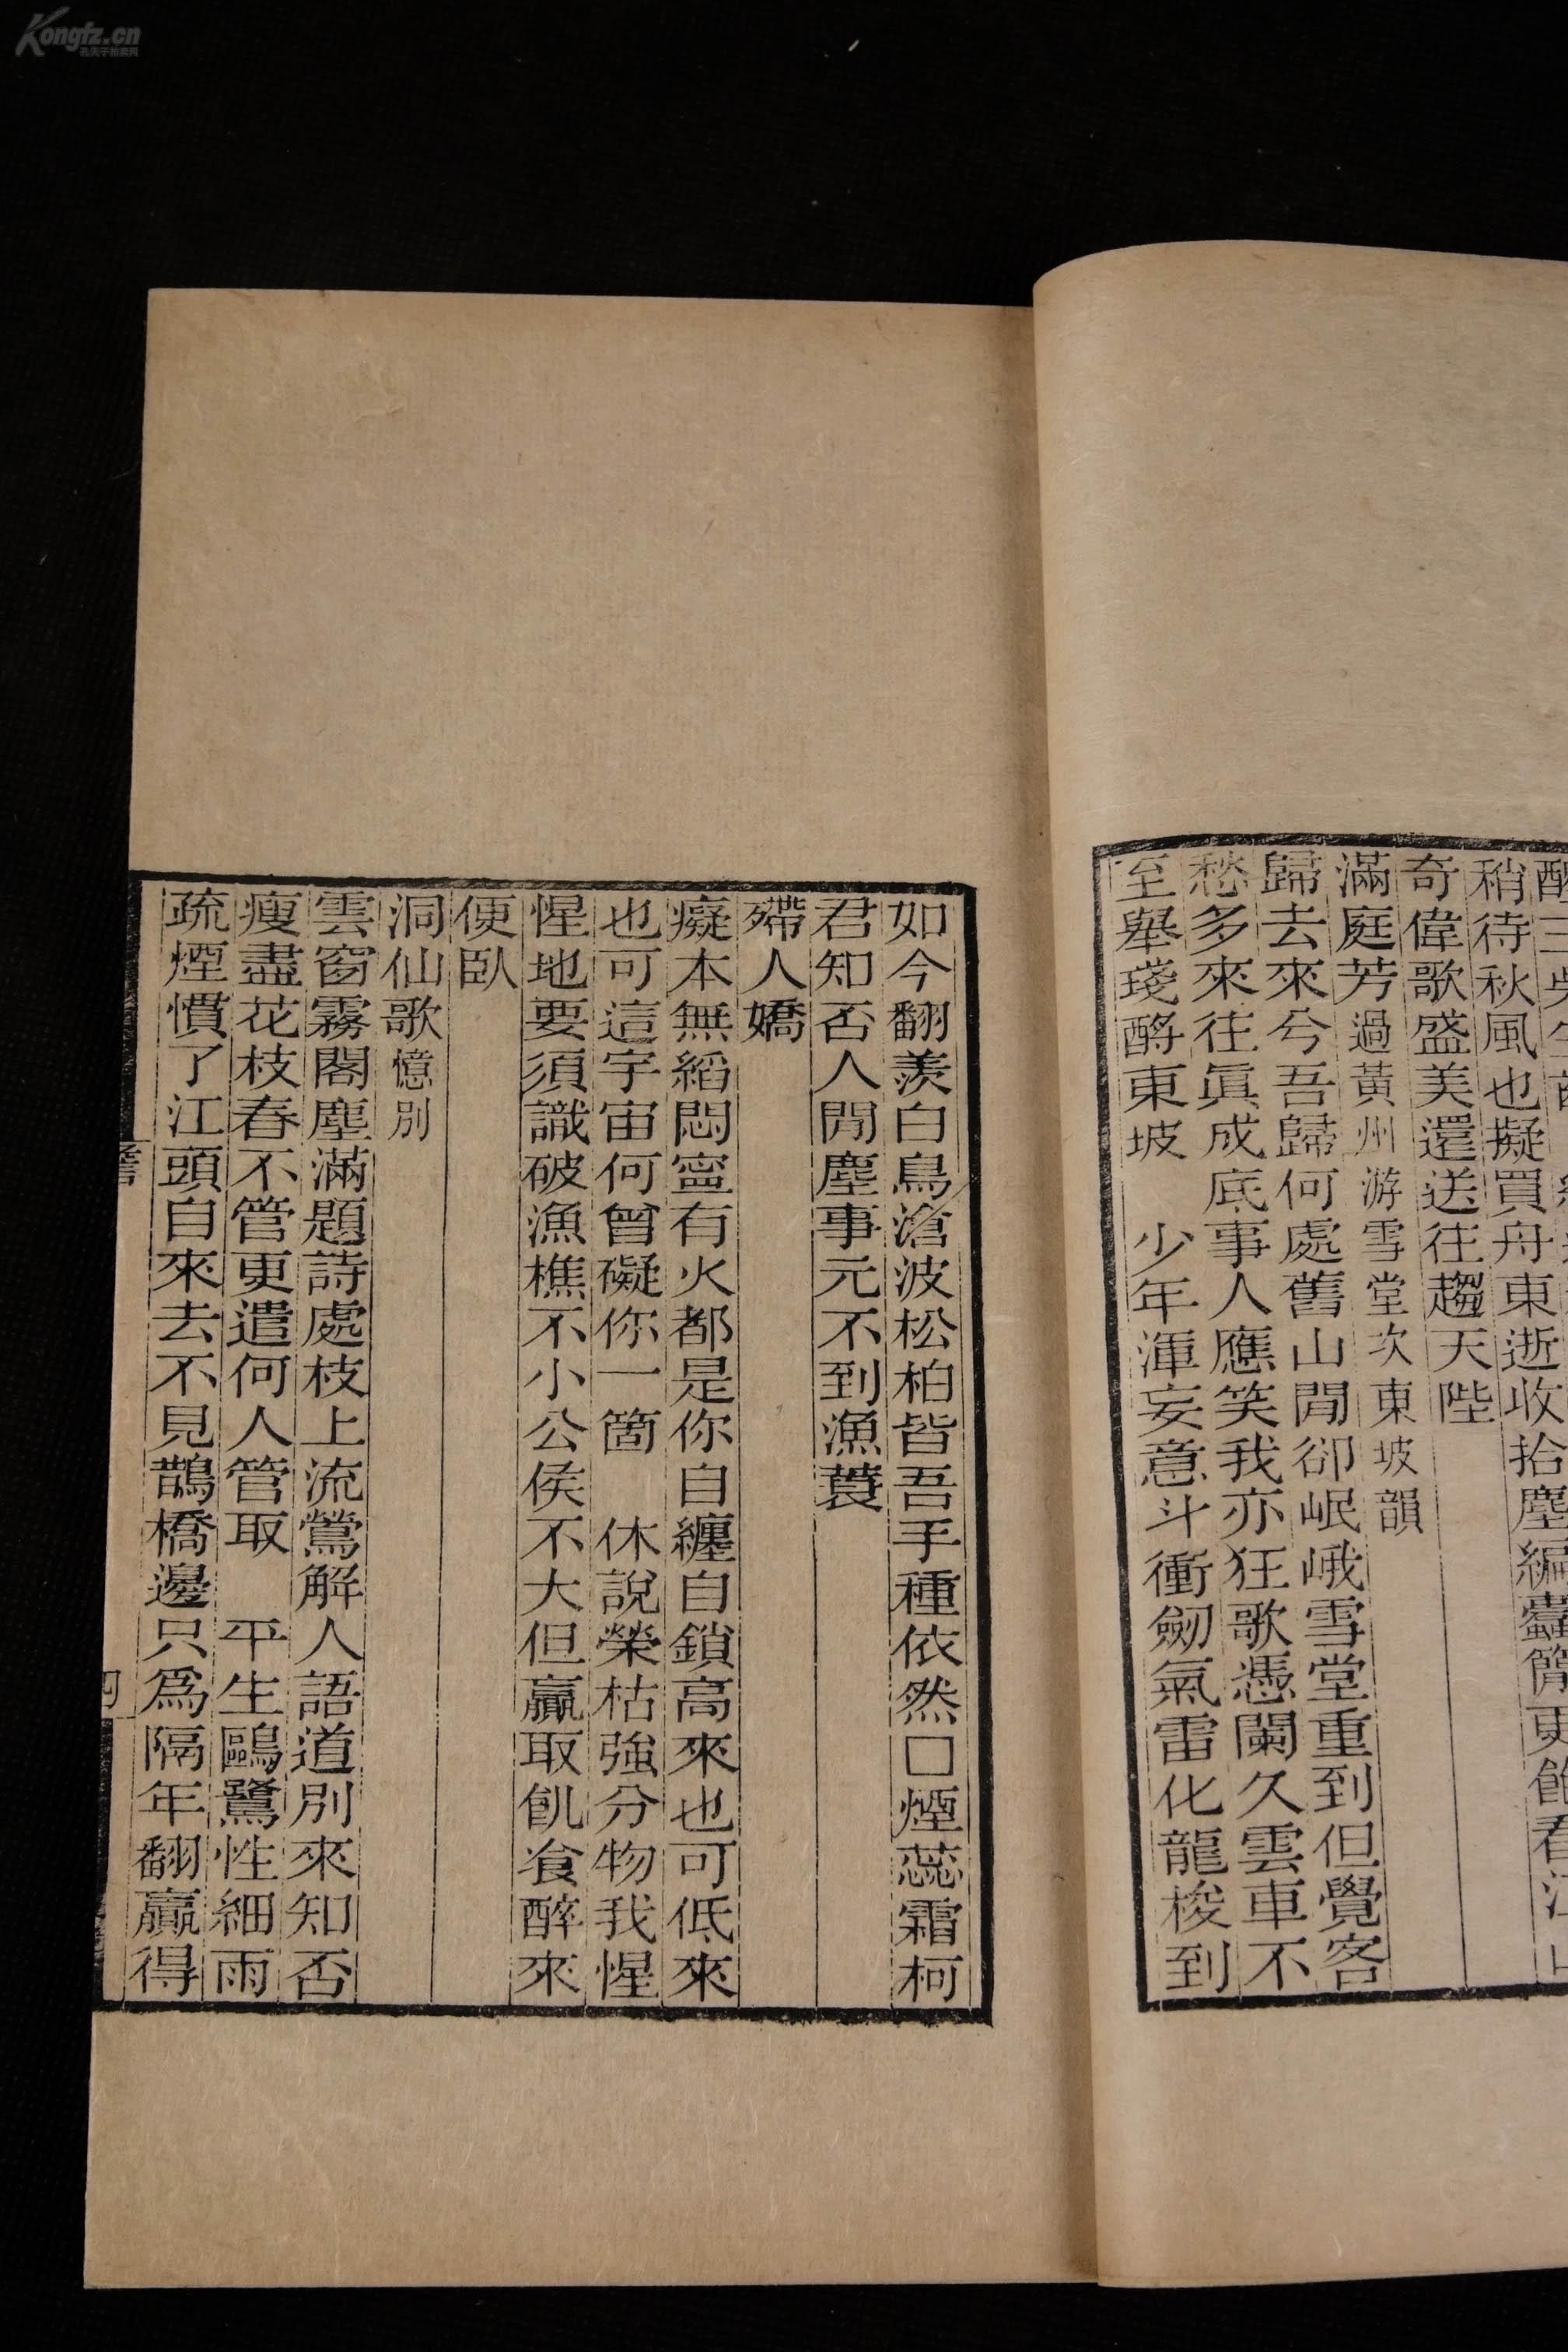 稍待秋風也擬買舟東逝收拾塵編蠹簡更飽看江
奇偉歌盛美還送往趨天陛
滿庭芳過黃州游雪堂次東坡韻
歸去來兮吾歸何處舊山閒卻岷峨雪堂重到但覺客
愁多來往眞成底事人應笑我亦狂歌憑闌久雲車不
至舉琖酹東坡　少年渾妄意斗衝劒氣雷化龍梭到
如今翻羡白鳥滄波松柏皆吾手種依然□煙蕊霜柯
君知否人閒塵事元不到漁蓑
殢人嬌
癡本無縚悶寍有火都是你自纏自鎖高來也可低來
也可這宇宙何曾礙你一箇　休說榮枯強分物我惺
惺地要須識破漁樵不小公侯不大但贏取飢飡醉來
便臥
洞仙歌憶別
雲窗霧閣塵滿題詩處枝上流鶯解人語道別來知否
瘦盡花枝春不管更遣何人管取　平生鷗鷺性細雨
疏煙慣了江頭自來去不見鵲橋邊只爲隔年翻贏得
Kongfz.cn